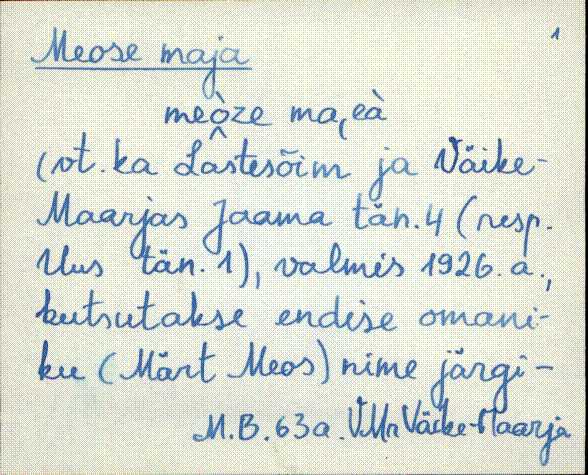 1
Meose maja
meòze ma(eà
(vt. ka Lastesõim ja Väike-
Maarjas Jaama tän. 4 (resp.
Uus tän. 1), valmis 1926. a.,
kutsutakse endise omani-
ku (Märt Meos) nime järgi –
M.B. 63a. VMr Väike-Maarja